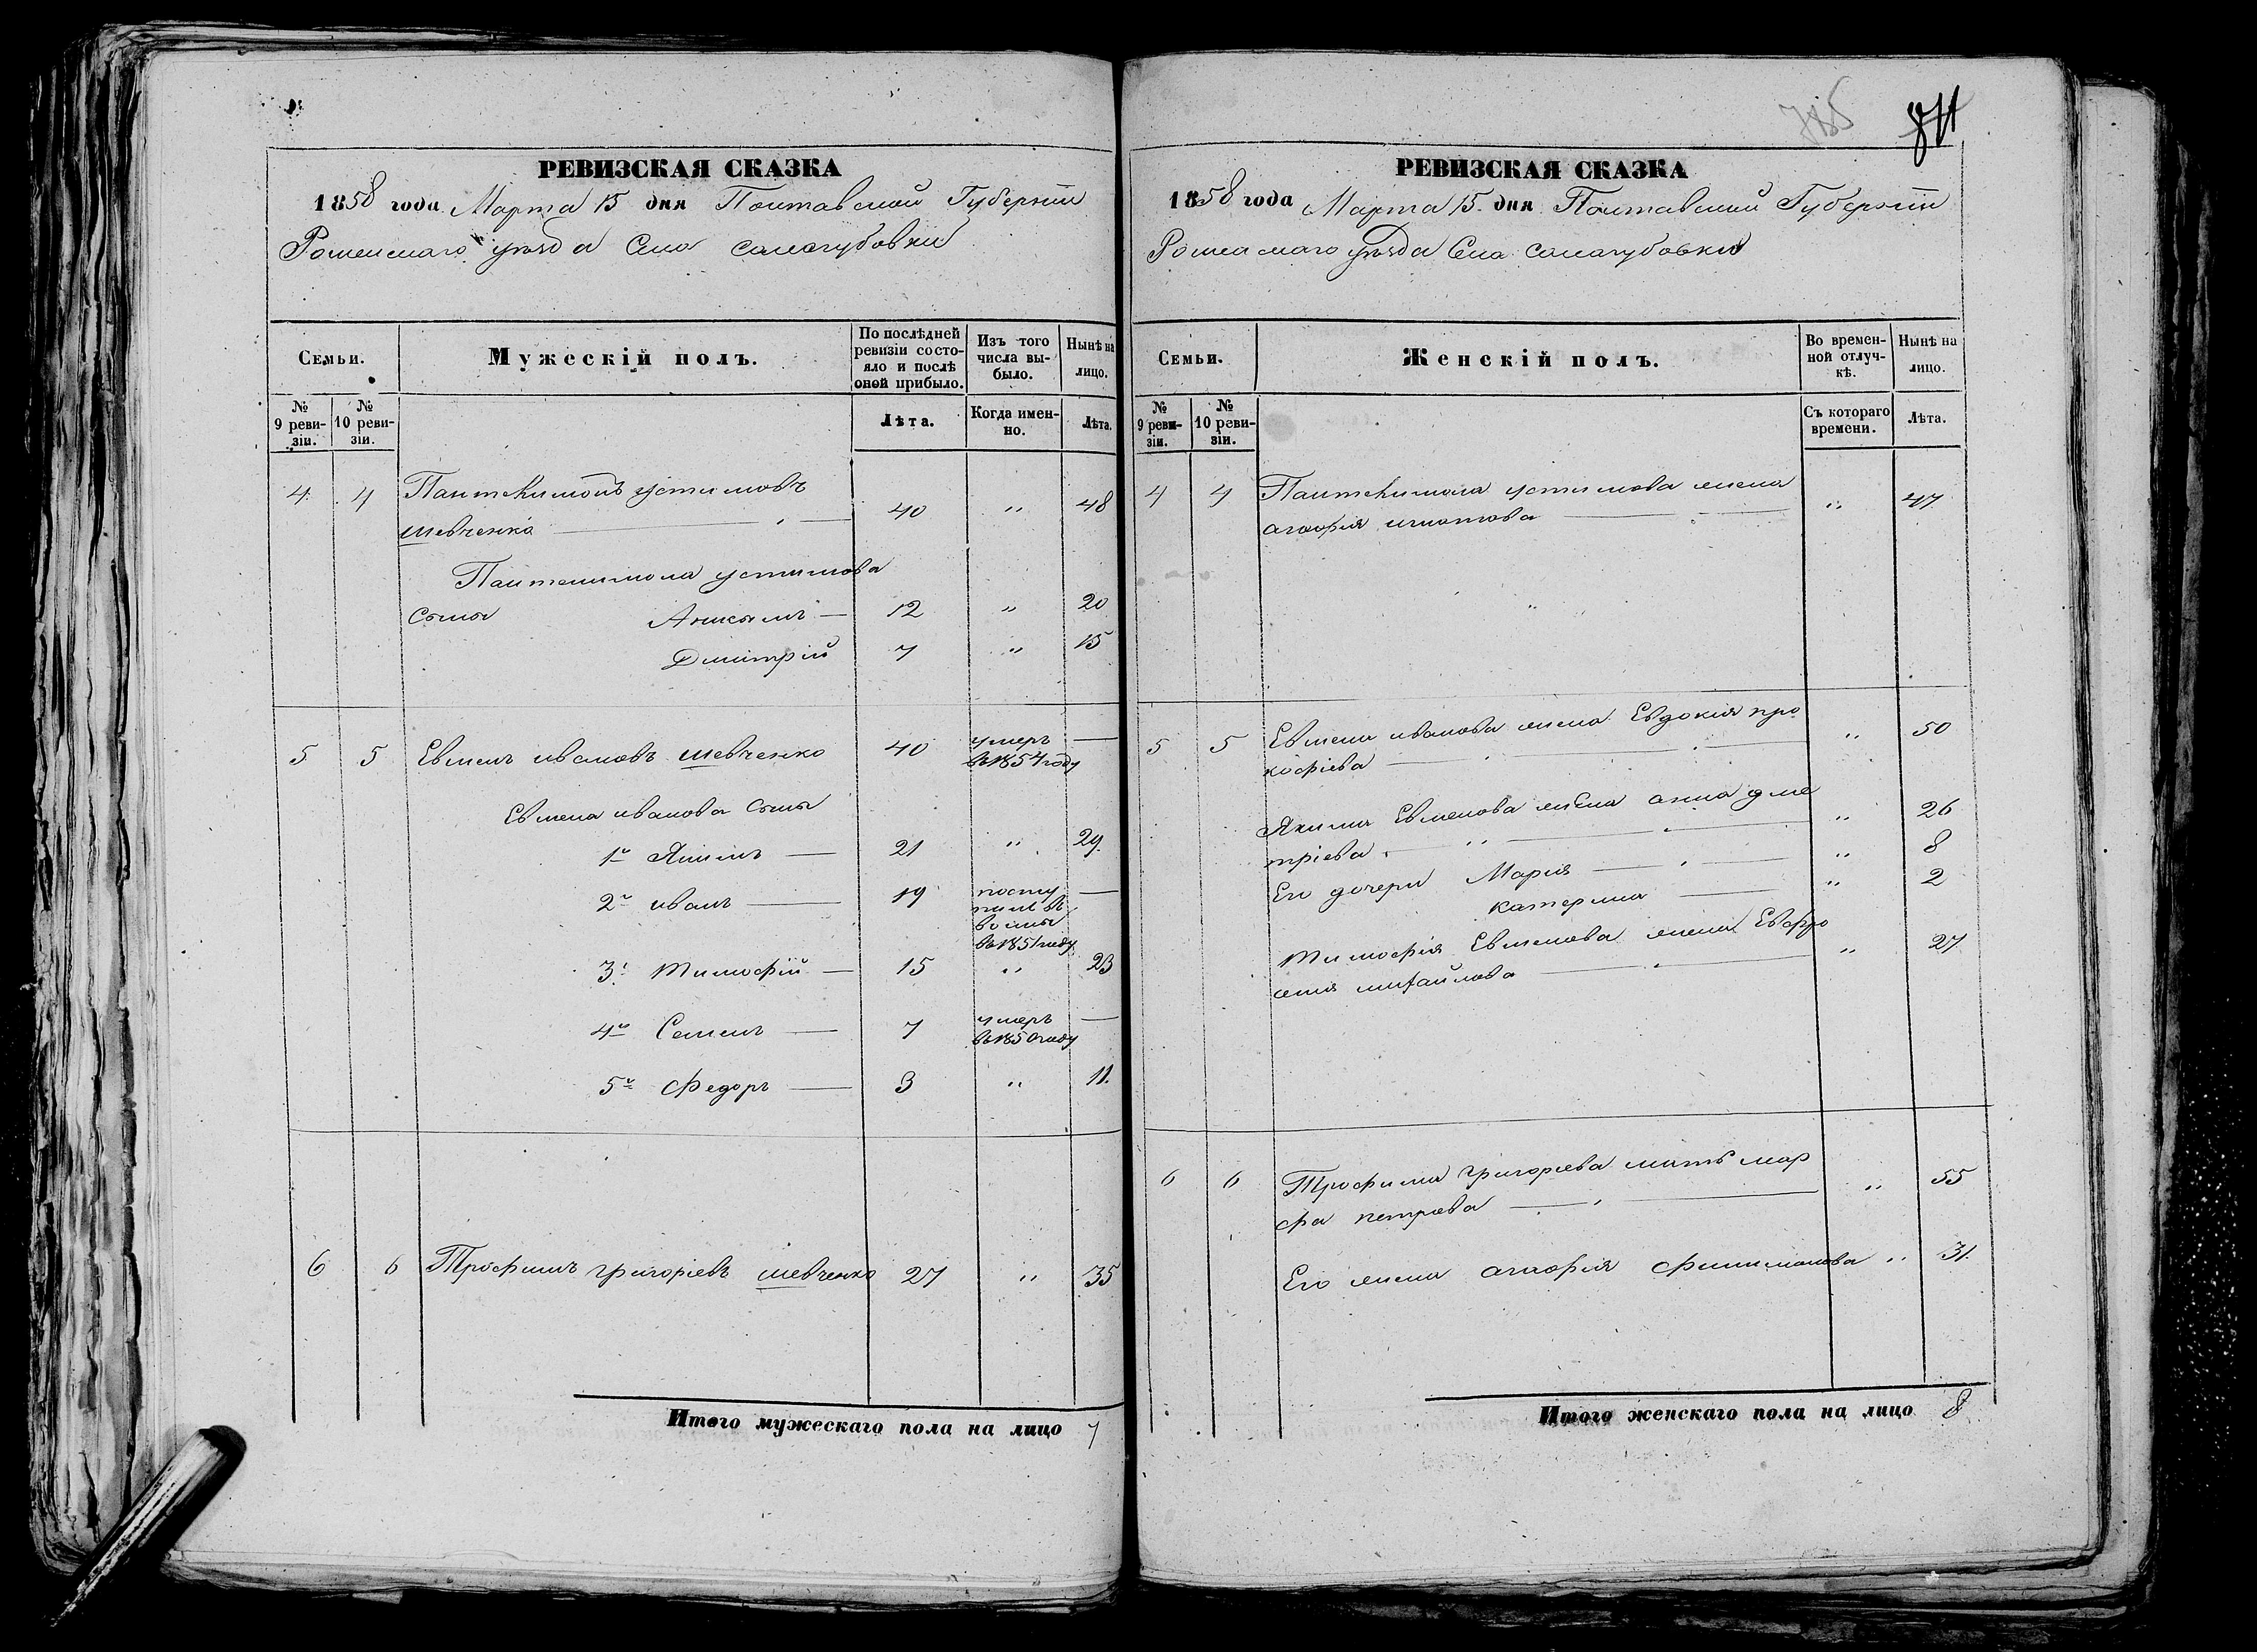 РЕВИЗСКАЯ СКАЗКА
1858 года Марта 15 дня Полтавской Губерніи
Роменскаго уѣзда Села Сологубовки
Семьи.
Мужескій полъ.
По послѣдней ревизіи состояло и послѣ оной прибыло.
Изъ того числа выбыло.
Нынѣ на лицо.
№ 9 ревизіи.
№ 10 ревизіи.
Лѣта.
Когда именно.
Лѣта.
4 4 Пантелимонъ устимовъ
шевченко 40 " 48
Пантелимона устимова
сыны
12 " 20
Дмитрій 7 " 15
5 5 Евменъ ивановъ шевченко 40 умеръ въ 1854 году —
Евмена иванова сыны
1й Якимъ — 21 " 29
2й иванъ — 19 поступилъ въ воины въ 1851 году —
3й тимофій — 15 " 23
4й Семенъ — 7 умеръ въ 1850 году —
5й Федоръ — 3 " 11.
6 6 Трофимъ григоріевъ шевченко 27 " 35
Итого мужескаго пола на лицо 7
785
РЕВИЗСКАЯ СКАЗКА
1858 года Марта 15 дня Полтавской Губерніи
Роменскаго уѣзда Села Сологубовки
Семьи.
Женскій полъ.
Во временной отлучкѣ.
Нынѣ на лицо.
№ 9 ревизіи.
№ 10 ревизіи.
Съ котораго времени.
Лѣта.
4 4 Пантелимона устимова жена
агафія игнатова " 47
5 5 Евмена иванова жена Евдокія про
кофіева " 50
Якима Евменова жена анна дме
тріева " 26
Его дочери Марія " 8
катерина " 2
тимофія Евменова жена Евфро
сенія михайлова " 27
6 6 Трофима григорієва мать мар
фа петрова " 55
Его жена агафія филимонова " 31.
Итого женскаго пола на лицо 8